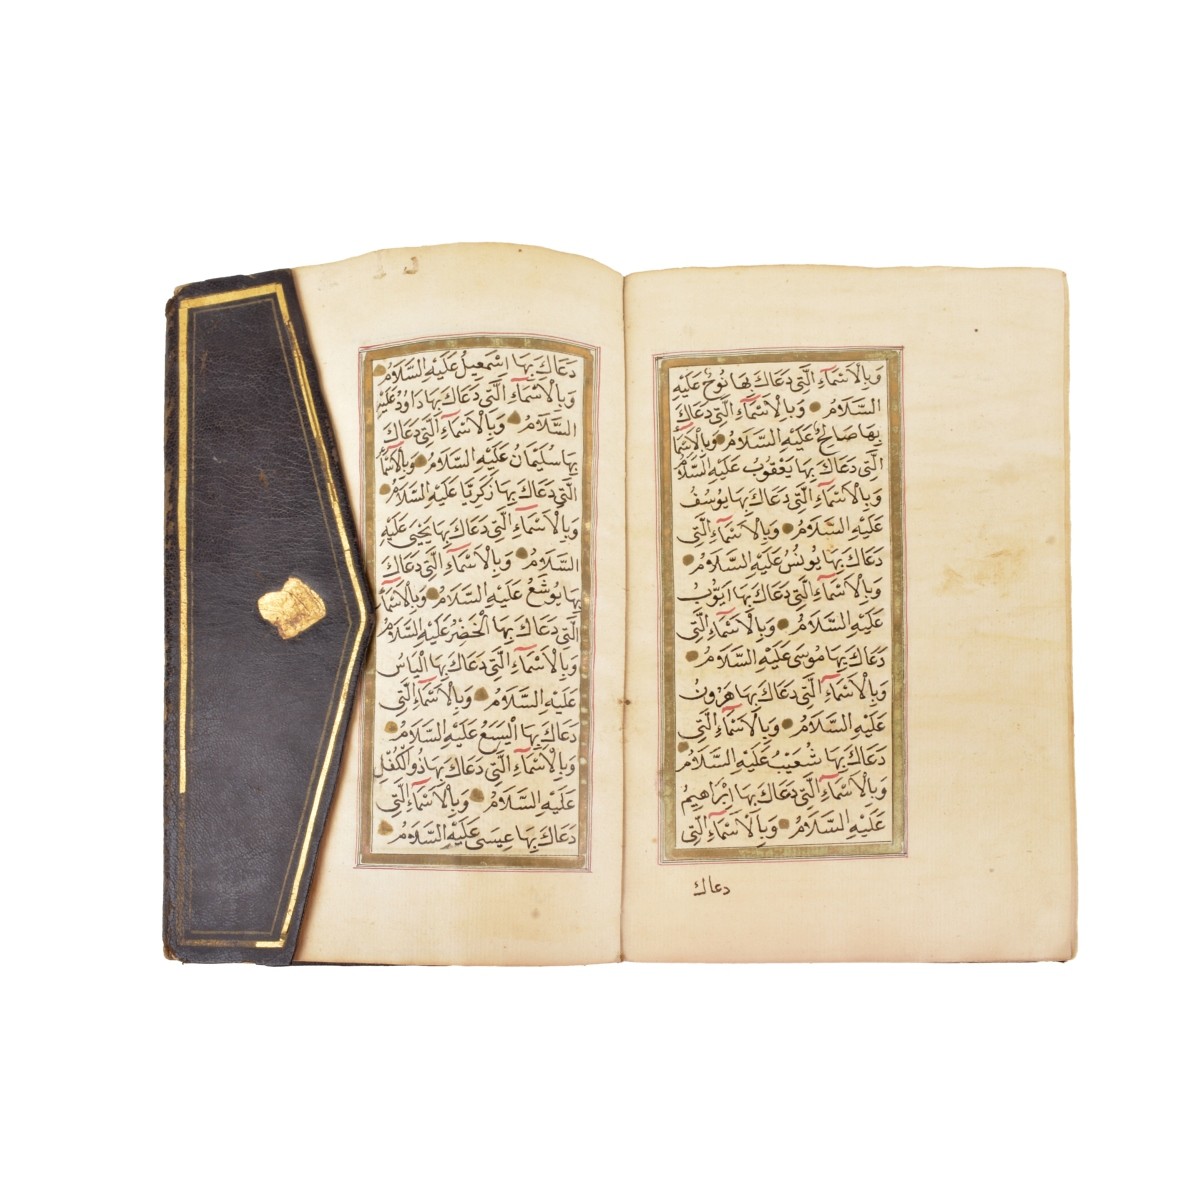 وَبِالْاَسْمَآءِ الَّتِى دَعَاكَ بِهَا نُوحٌ عَلَيْهِ
السَّلَامُ وَبِالْاَسْمَآءِ الَّتِى دَعَاكَ
بِهَا صَالِحٌ عَلَيْهِ السَّلَامُ وَبِالْاَسْمَآءِ
الَّتِى دَعَاكَ بِهَا يَعْقُوبُ عَلَيْهِ السَّلَامُ
وَبِالْاَسْمَآءِ الَّتِى دَعَاكَ بِهَا يُوسُفُ
عَلَيْهِ السَّلَامُ وَبِالْاَسْمَآءِ الَّتِى
دَعَاكَ بِهَا يُونُسُ عَلَيْهِ السَّلَامُ
وَبِالْاَسْمَآءِ الَّتِى دَعَاكَ بِهَا اَيُّوبُ
عَلَيْهِ السَّلَامُ وَبِالْاَسْمَآءِ الَّتِى
دَعَاكَ بِهَا مُوسَى عَلَيْهِ السَّلَامُ
وَبِالْاَسْمَآءِ الَّتِى دَعَاكَ بِهَا هٰرُونُ
عَلَيْهِ السَّلَامُ وَبِالْاَسْمَآءِ الَّتِى
دَعَاكَ بِهَا شُعَيْبُ عَلَيْهِ السَّلَامُ
وَبِالْاَسْمَآءِ الَّتِى دَعَاكَ بِهَا اِبْرَاهِيمُ
عَلَيْهِ السَّلَامُ وَبِالْاَسْمَآءِ الَّتِى
دعاك
دَعَاكَ بِهَا اِسْمٰعِيلُ عَلَيْهِ السَّلَامُ
وَبِالْاَسْمَآءِ الَّتِى دَعَاكَ بِهَا دَاوُدُ عَلَيْهِ
السَّلَامُ وَبِالْاَسْمَآءِ الَّتِى دَعَاكَ
بِهَا سُلَيْمَانُ عَلَيْهِ السَّلَامُ وَبِالْاَسْمَآءِ
الَّتِى دَعَاكَ بِهَا زَكَرِيَّا عَلَيْهِ السَّلَامُ
وَبِالْاَسْمَآءِ الَّتِى دَعَاكَ بِهَا يَحْيٰى عَلَيْهِ
السَّلَامُ وَبِالْاَسْمَآءِ الَّتِى دَعَاكَ
بِهَا يُوشَعُ عَلَيْهِ السَّلَامُ وَبِالْاَسْمَآءِ
الَّتِى دَعَاكَ بِهَا الْخَضِرُ عَلَيْهِ السَّلَامُ
وَبِالْاَسْمَآءِ الَّتِى دَعَاكَ بِهَا اِلْيَاسُ
عَلَيْهِ السَّلَامُ وَبِالْاَسْمَآءِ الَّتِى
دَعَاكَ بِهَا الْيَسَعُ عَلَيْهِ السَّلَامُ
وَبِالْاَسْمَآءِ الَّتِى دَعَاكَ بِهَا ذُوالْكِفْلِ
عَلَيْهِ السَّلَامُ وَبِالْاَسْمَآءِ الَّتِى
دَعَاكَ بِهَا عِيسٰى عَلَيْهِ السَّلَامُ